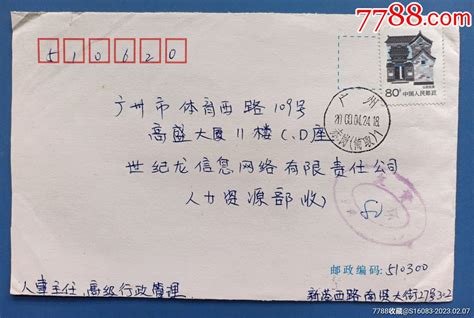 7788.com
510620
80分 中国人民邮政
广州
2000.04.24.18
广州市体育西路109号
高盛大厦11楼C、D座
世纪龙信息网络有限责任公司
人力资源部收
邮政编码：510300
人事主任、高级行政管理
新港西路南贤大街27号302
7788收藏@S16083-2023.02.07